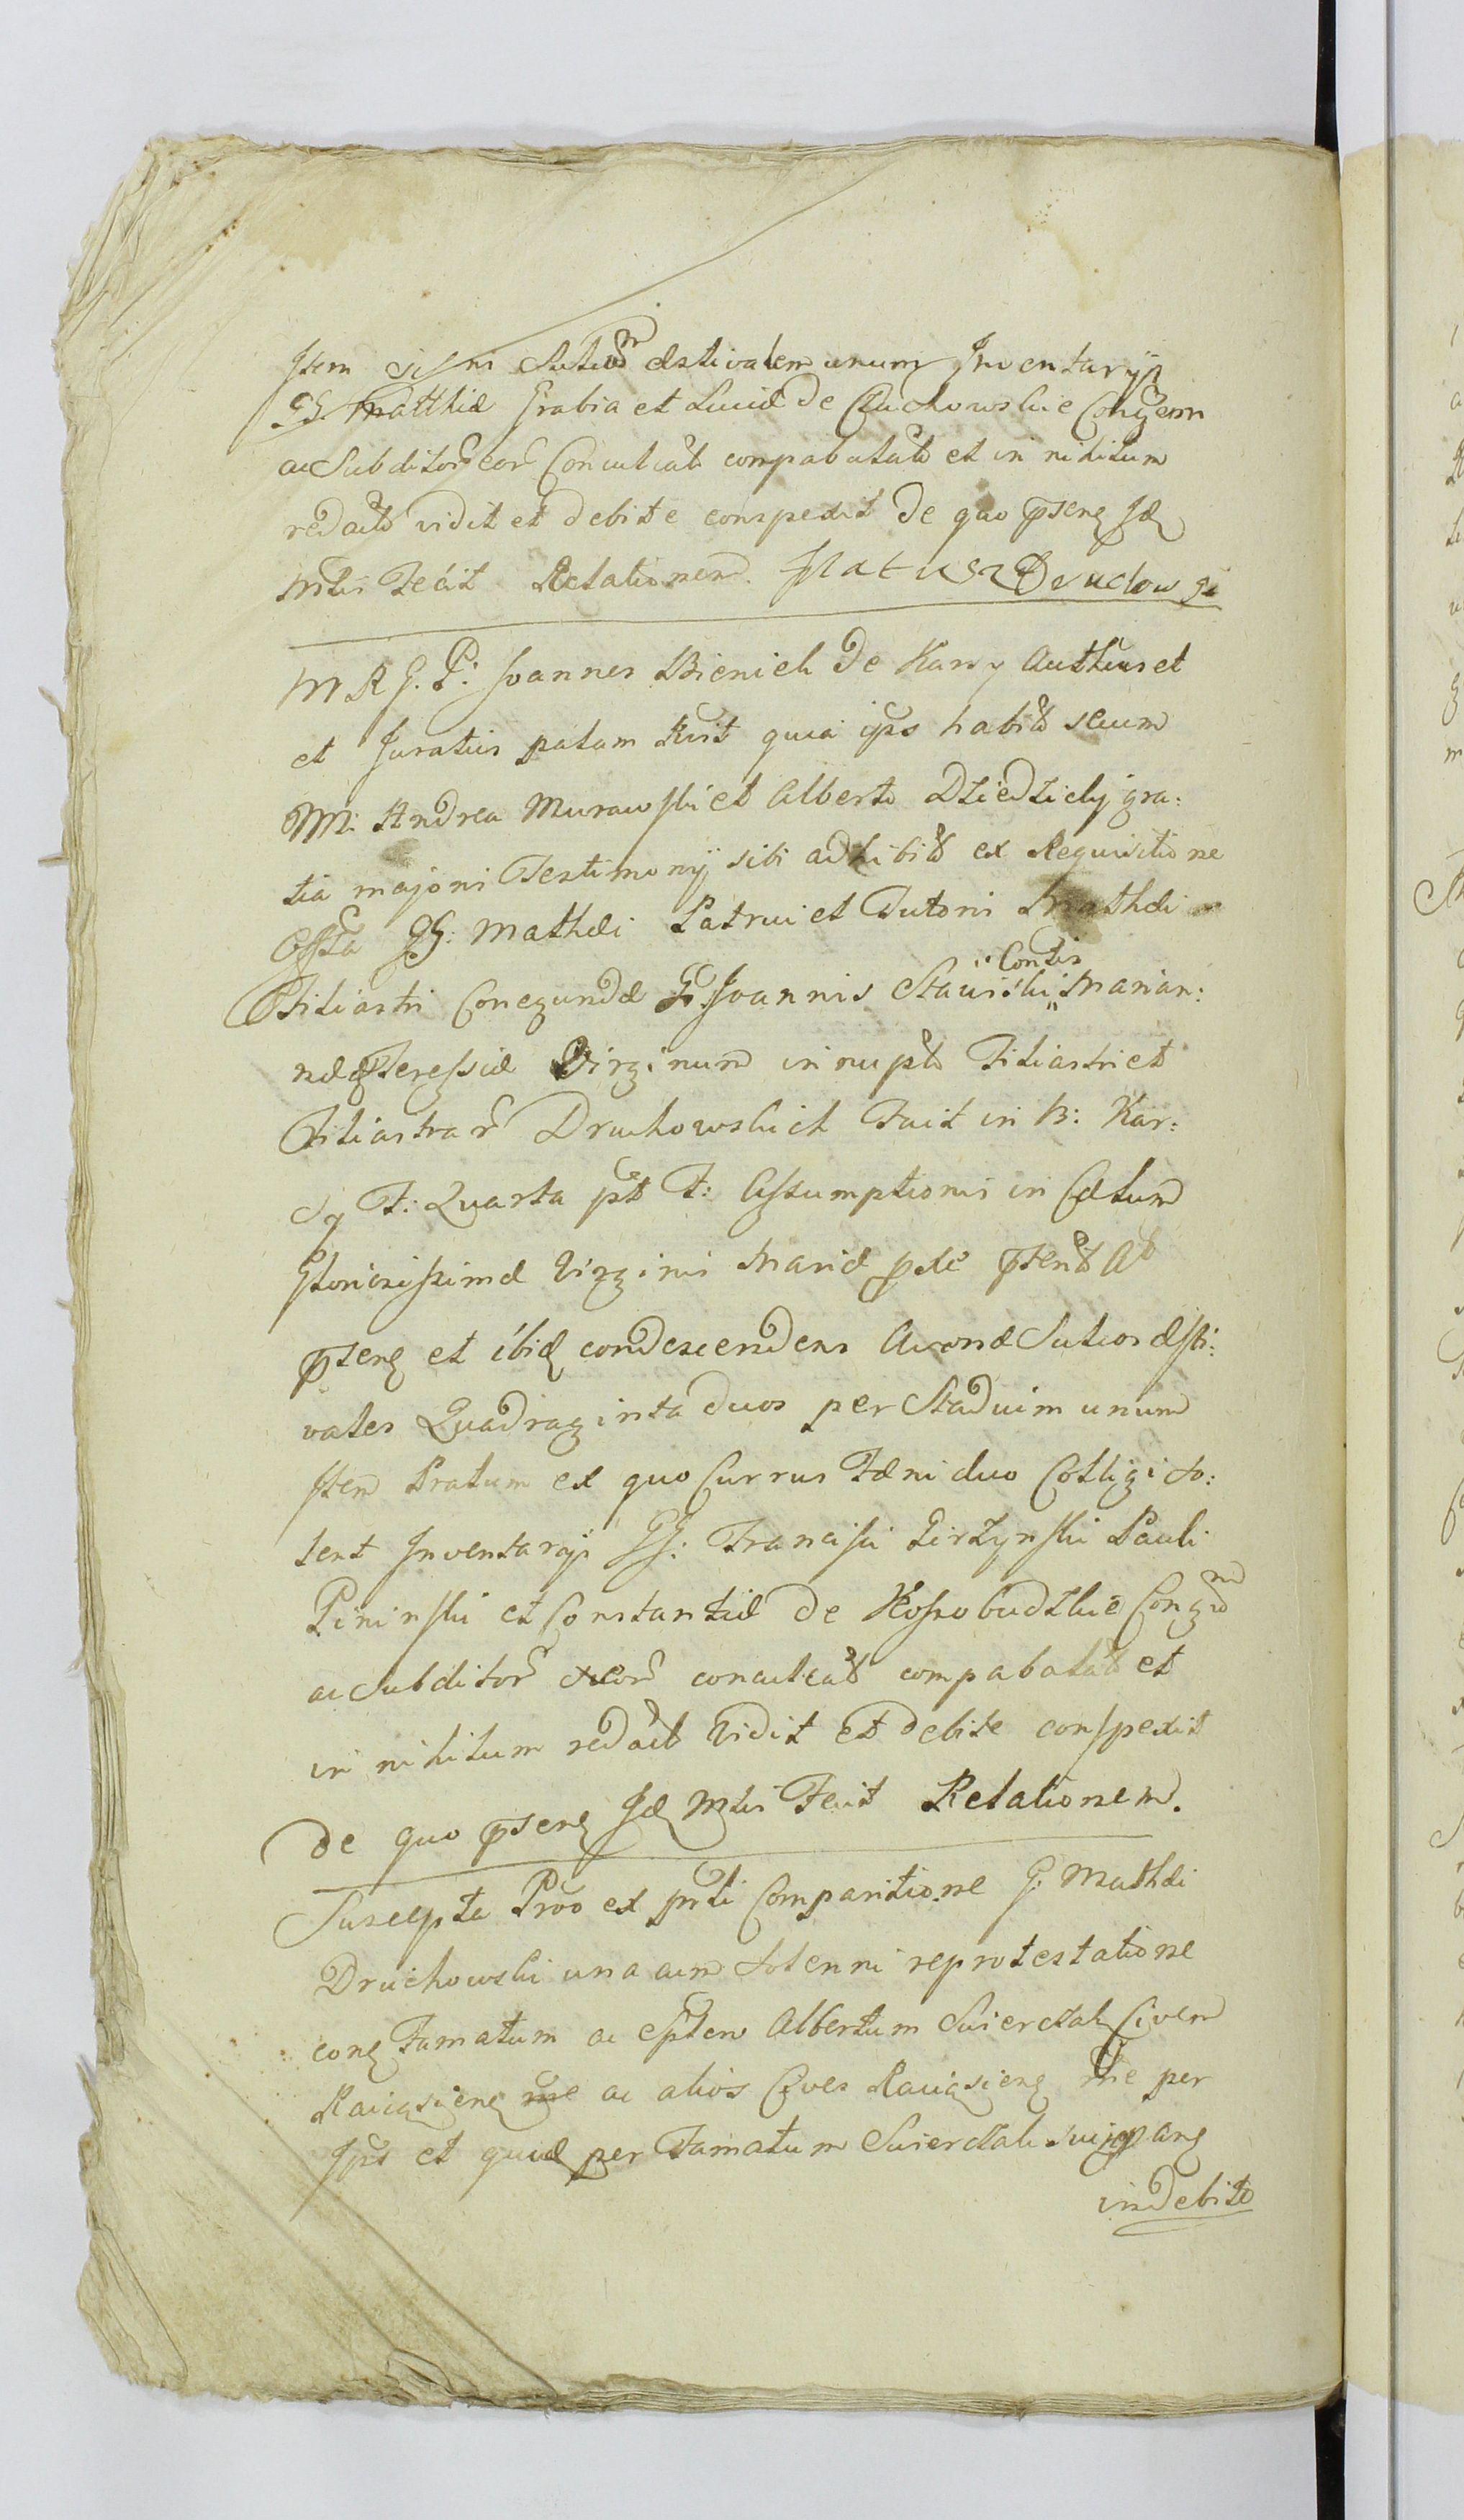 Item Sulcum Æstivalem unum Inventarÿs
GG. Matthiæ Grabia et Luciæ de Czuchowskie Conjugem
ac Subditor eor Conculcat compabulat et in nihilum
redact vidit et debite conspexit de quo pseng Jd
Mlis Fecit Relationem.
M R G. P: Joannes Bienick de Karsy Authus et
et Juratus palam Reit quia ips habit secum
NN: Andrea Murawski et Alberto Dziedzicky gra:
tia majoris Testimonÿ sibi adhibit ex Requisitione
Offia GG: Mathæi Patrui et Tutoris Mathæi
Filiastri Conegundæ G. Joannis Stawiski Contis Marian:
næ Teressiæ Virginum innupt Filiastri et
Filiastrar Druchowskich Fuit in B: Kar:
sy F: Quarta pt F: Assumptionis in Cælum
Gloriosissimæ Virginis Mariæ pxe psent A
pseng et ibid condescendens Avenæ Sulcos Æsti:
vales Quadraginta duos per Stadium unum
Item Pratum ex quo Currus Fæni duo Colligi so:
lent Inventarÿs GG: Francisci Pirzynski Pauli
Pininski et Constantiæ de Kossobudzkie Congum
ac Subditor eor conculcat compabulat et
in nihilum redact Vidit et debite conspexit
de quo pseng Jd Mlis Fecit Relationem.
Suscepta Proo ex pnti Comparitione G: Mathæi
Druchowski una cum solenni reprotestatione
cong Famatum ac Spten Albertum Swierczak Civem
Raviasieng ac alios Cives Raviasieng me per
Ips et quid per Famatum Swierczak
indebite